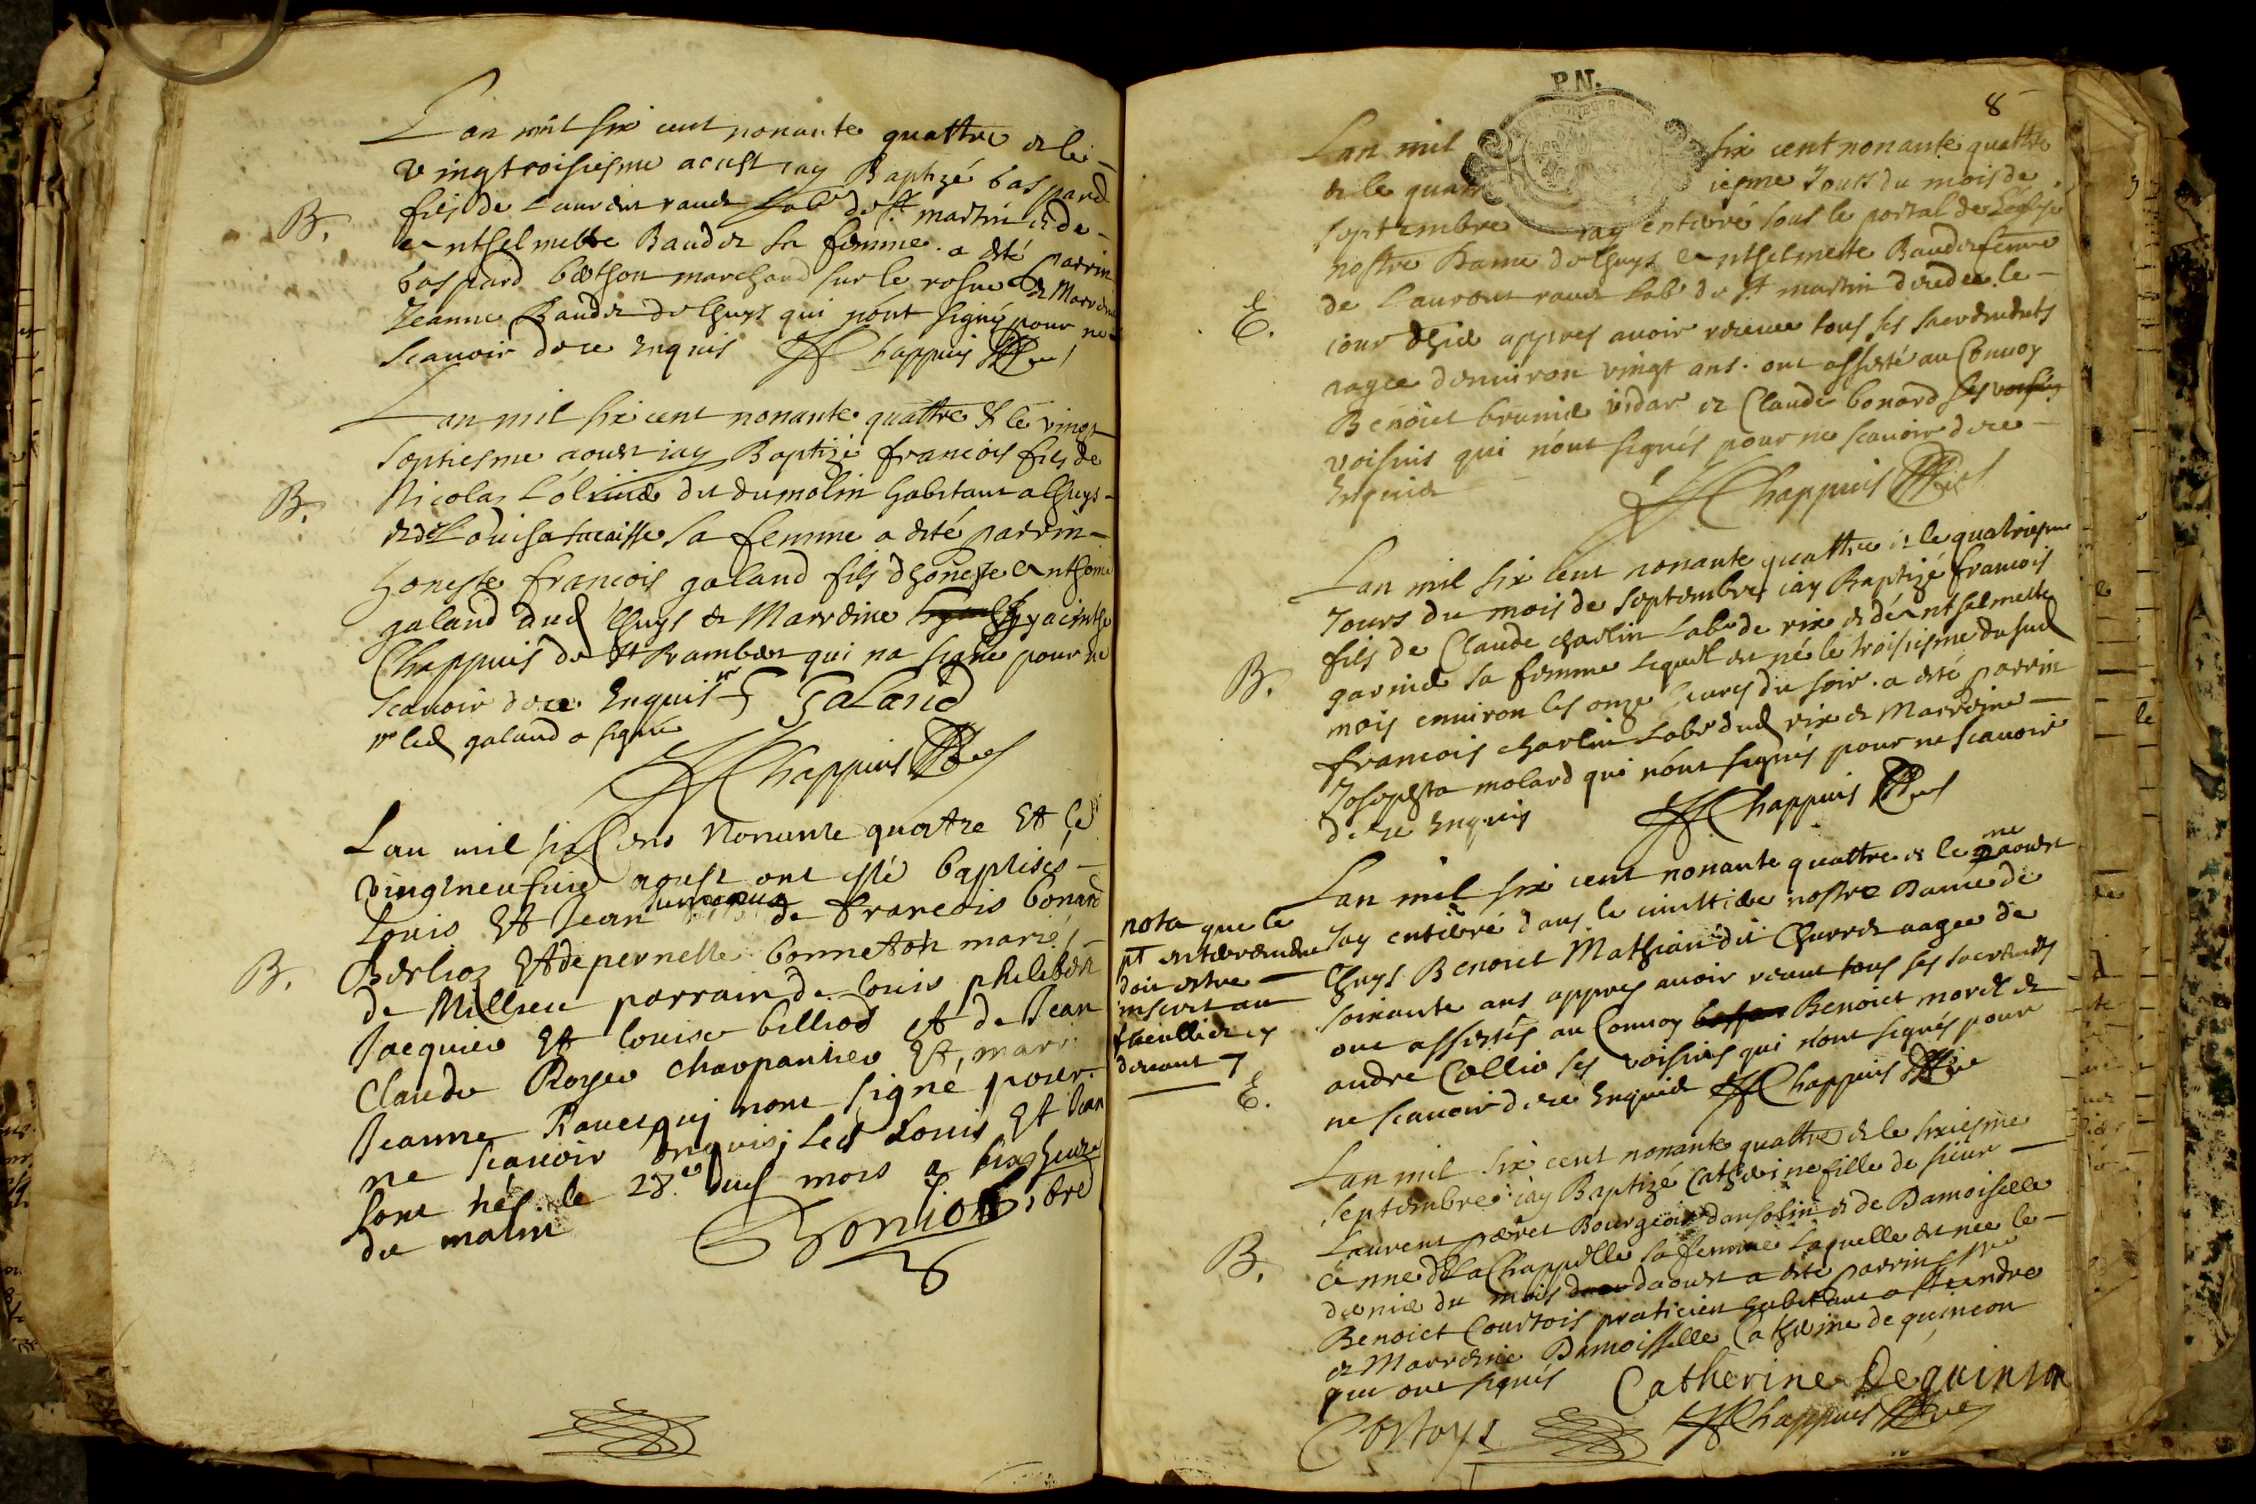 Lan mil six cent nonante quattre et le
vingtroisiesme aoust iay Baptizé Gaspard
fils de Laurent ravet Lab.r de St martin et de
B.
Anthelmette Baudet sa femme. a esté parrin
Gaspard marchand sur le rosne et Marreine
Jeanne Baudet de Lhuys qui n'ont signé pour ne
scavoir de ce Enquis Chappuis
Lan mil six cent nonante quattre & le vingt
septiesme aoust iay Baptizé francois fils de
B.
Nicolas dit dumolin habitant a Lhuys
et de Louisa sa femme a esté parrin
honeste francois galand fils dhoneste Anthoine
galand dud Lhuys & Marreine hyacinthe
Chappuis de St Rambert qui na signé pour ne
scavoir de ce Enquis Galand
led galand a signé
Chappuis
Lan mil six Cens Nonante quatre Et le
vingtneufvie agust ont esté baptisés
Louis Et Jean jumeaux de francois bonard
B.
Berlioz Et de pernette bonneton mariés
de Millieu parrain de Louis philibert
Jacquier Et Louise billiod et de Jean
Claude Royer charpantier Et, marr.
Jeanne Ravet qui nont signé pour
ne scavoir enquis; Led Louis Et Jean
sont nés le 28.e dud mois a six heures
du matin
P.N.
8
Lan mil six cent nonante quattre
& le iesme Jours du mois de
septembre iay enterré sous le portal de Leglise
nostre Dame de Lhuys Anthelmette Baudet femme
de Laurent ravet Lab.r de St martin decedee le
E.
iour dhier appres avoir receue tous ses sacrements
aagee denviron vingt ans. ont assisté au Convoy
Benoict brunier vidar et Claude bonard ses voisins
voisins qui n'ont signés pour ne scavoir de ce
Enquis
Chappuis
Lan mil six cent nonante quattre et le quatriesme
Jours du mois de septembre iay Baptizé francois
fils de Claude charlin Lab.r de rix et de Anthelmette
B.
garnier sa femme lequel est né le troisiesme dusud
mois environ les onze heures du soir. a esté parrin
francois charlin Lab.r dud rix & Marreine
Josephta molard qui n'ont signés pour ne scavoir
de ce Enquis
Chappuis
Lan mil six cent nonante quattre et le aoust
Jay entérré dans le cimittiere nostre Dame de
Lhuys Benoict Mathian dit Charret aagee de
soixante ans appres avoir receut tous ses sacrements
ont assistés au Convoy Benoict morel et
andre Collio ses voisins qui n'ont signés pour
ne scavoir de ce Enquis Chappuis
nota que le
pt enterrement
doit estre
inscrit au
feuillet cy
devant 7
E.
Lan mil six cent nonante quattre et le sixiesme
septembre iay Baptizé Catherine fille de sieur
Laurent Bourgeois et de Damoiselle
B.
Anne de La Chappelle sa femme laquelle est nee le
dernier du mois daoust a esté parrin
Benoict Courtois praticien habitant a St andre
et Marreine Damoisselle Catherine de quincon
qui ont signés
Catherine De quinson
Cortoys
Chappuis